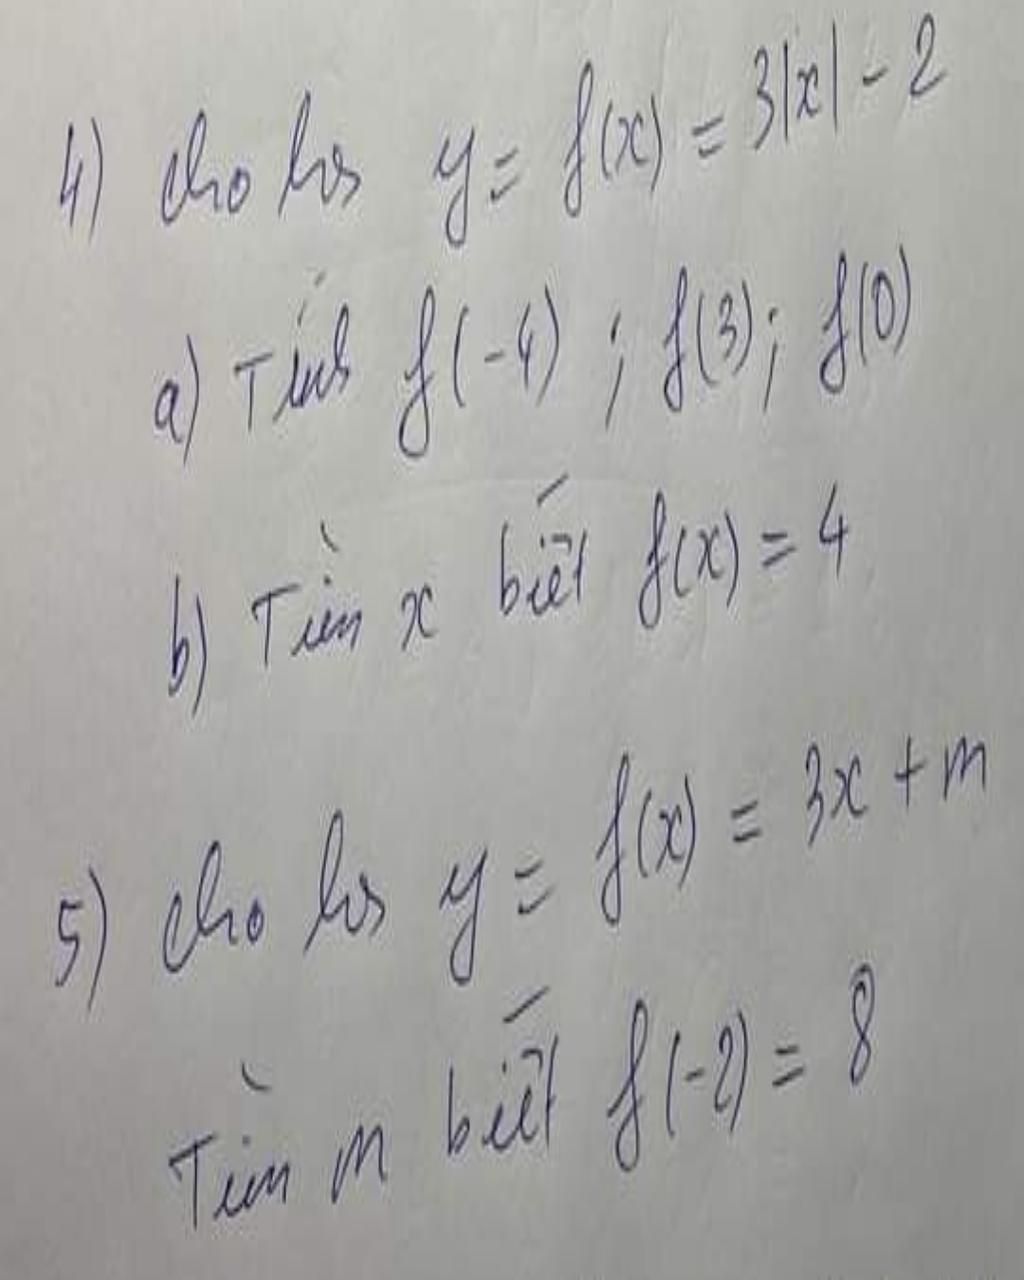 4) cho hs y = f(x) = 3|x| - 2
a) Tính f(-4) ; f(3) ; f(0)
b) Tìm x biết f(x) = 4
5) cho hs y = f(x) = 3x + m
Tìm m biết f(-2) = 8